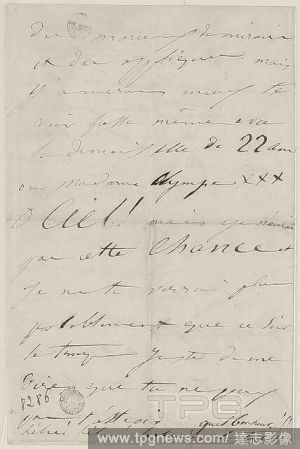 du morceau de miroir
et des appliques mais
j'aimerais mieux te
voir faite même avec
la demoiselle de 22 ans
ou madame Olympe XXX
O Ciel! mais je n'aurai
pas cette Chance et
je ne te verrai plus
probablement que ce soir
le temps juste de me
dire que tu ne peux
pas
quel bonheur!!
8286
TPG
www.tpgnews.com / 達志影像